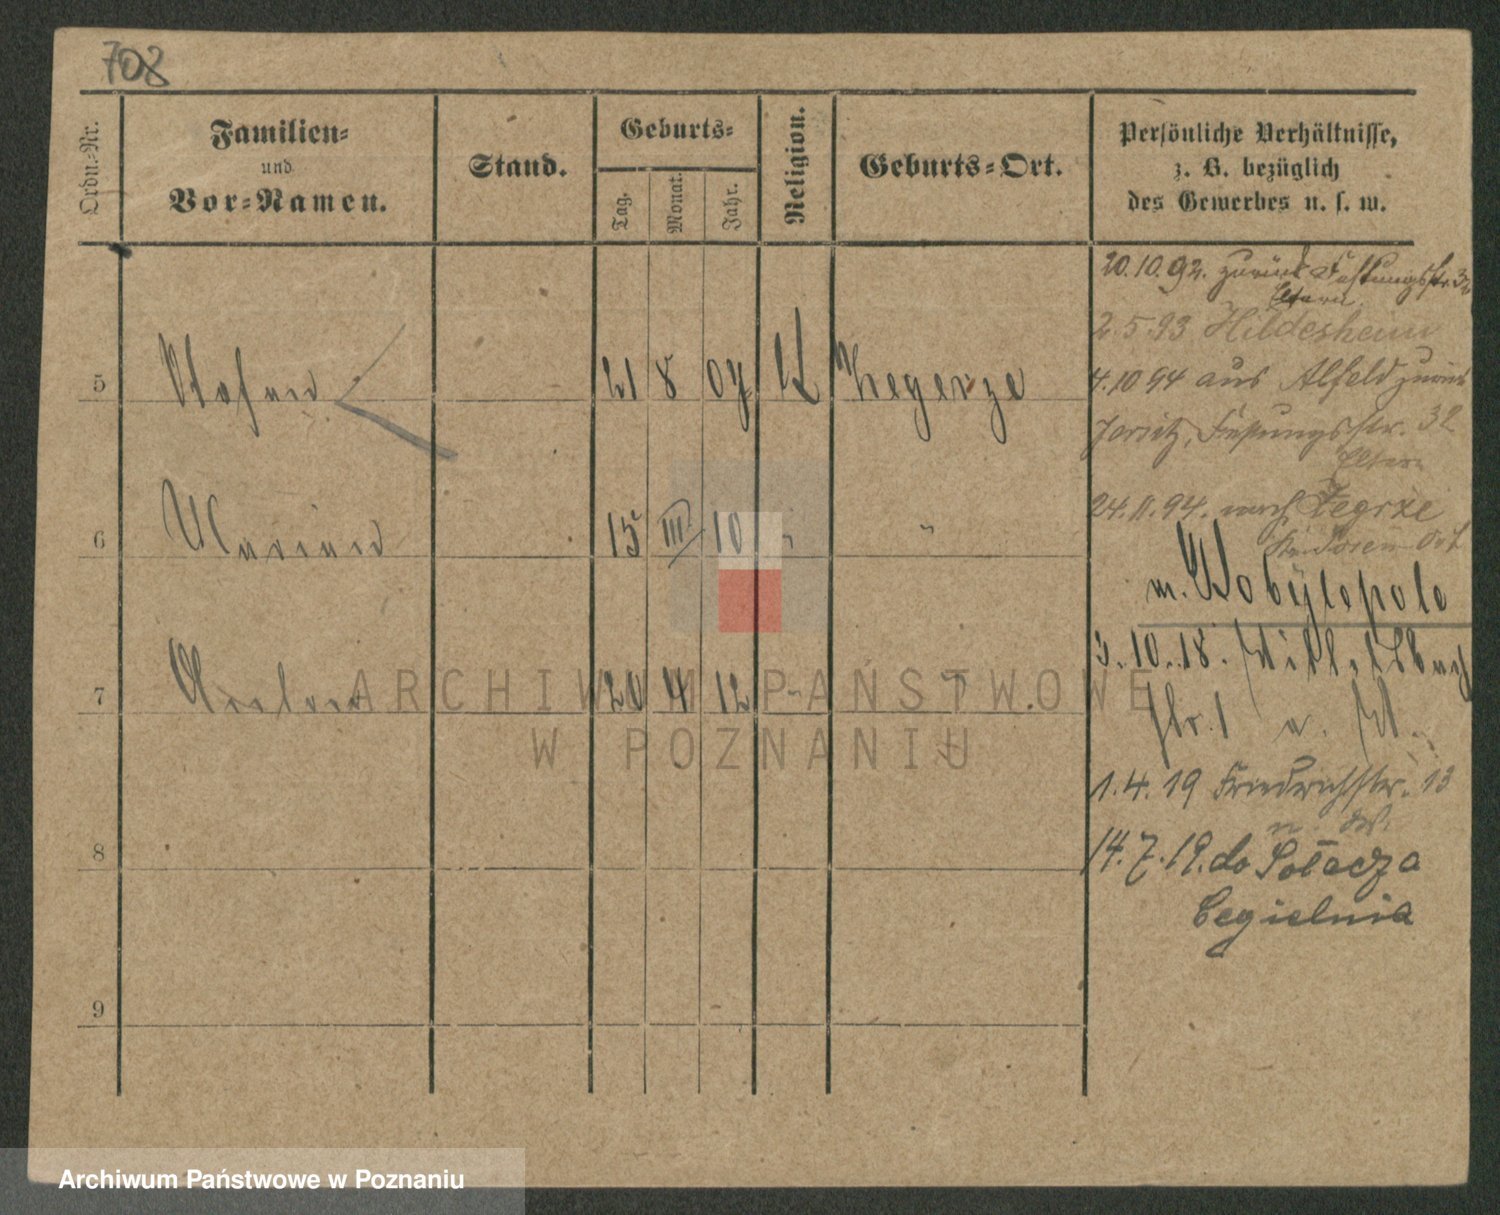 708
Ordn.-Nr.
Familien-
und
Vor-Namen.
Stand.
Geburts-
Tag.
Monat.
Jahr.
Religion.
Geburts-Ort.
Persönliche Verhältnisse,
z. B. bezüglich
des Gewerbes u. s. w.
20.10.92. zurück Festungsstr. 32
Eltern
2.5.93 Hildesheim
5 Stefan 21 8 07 K Zegerze
4.10 94 aus Alfeld zurück
Jersitz, Festungsstr. 32
Eltern
24.11.94. nach Zegrze
Kr. Posen Ost
6 Marian 15 III 10 " "
n. Kobylepole
3.10.18.
7 20 4 12 "
str. 1
1.4.19 Friedrichstr. 13
8
14.7.19. do Sołacza
Cegielnia
9
ARCHIWUM PAŃSTWOWE
W POZNANIU
Archiwum Państwowe w Poznaniu